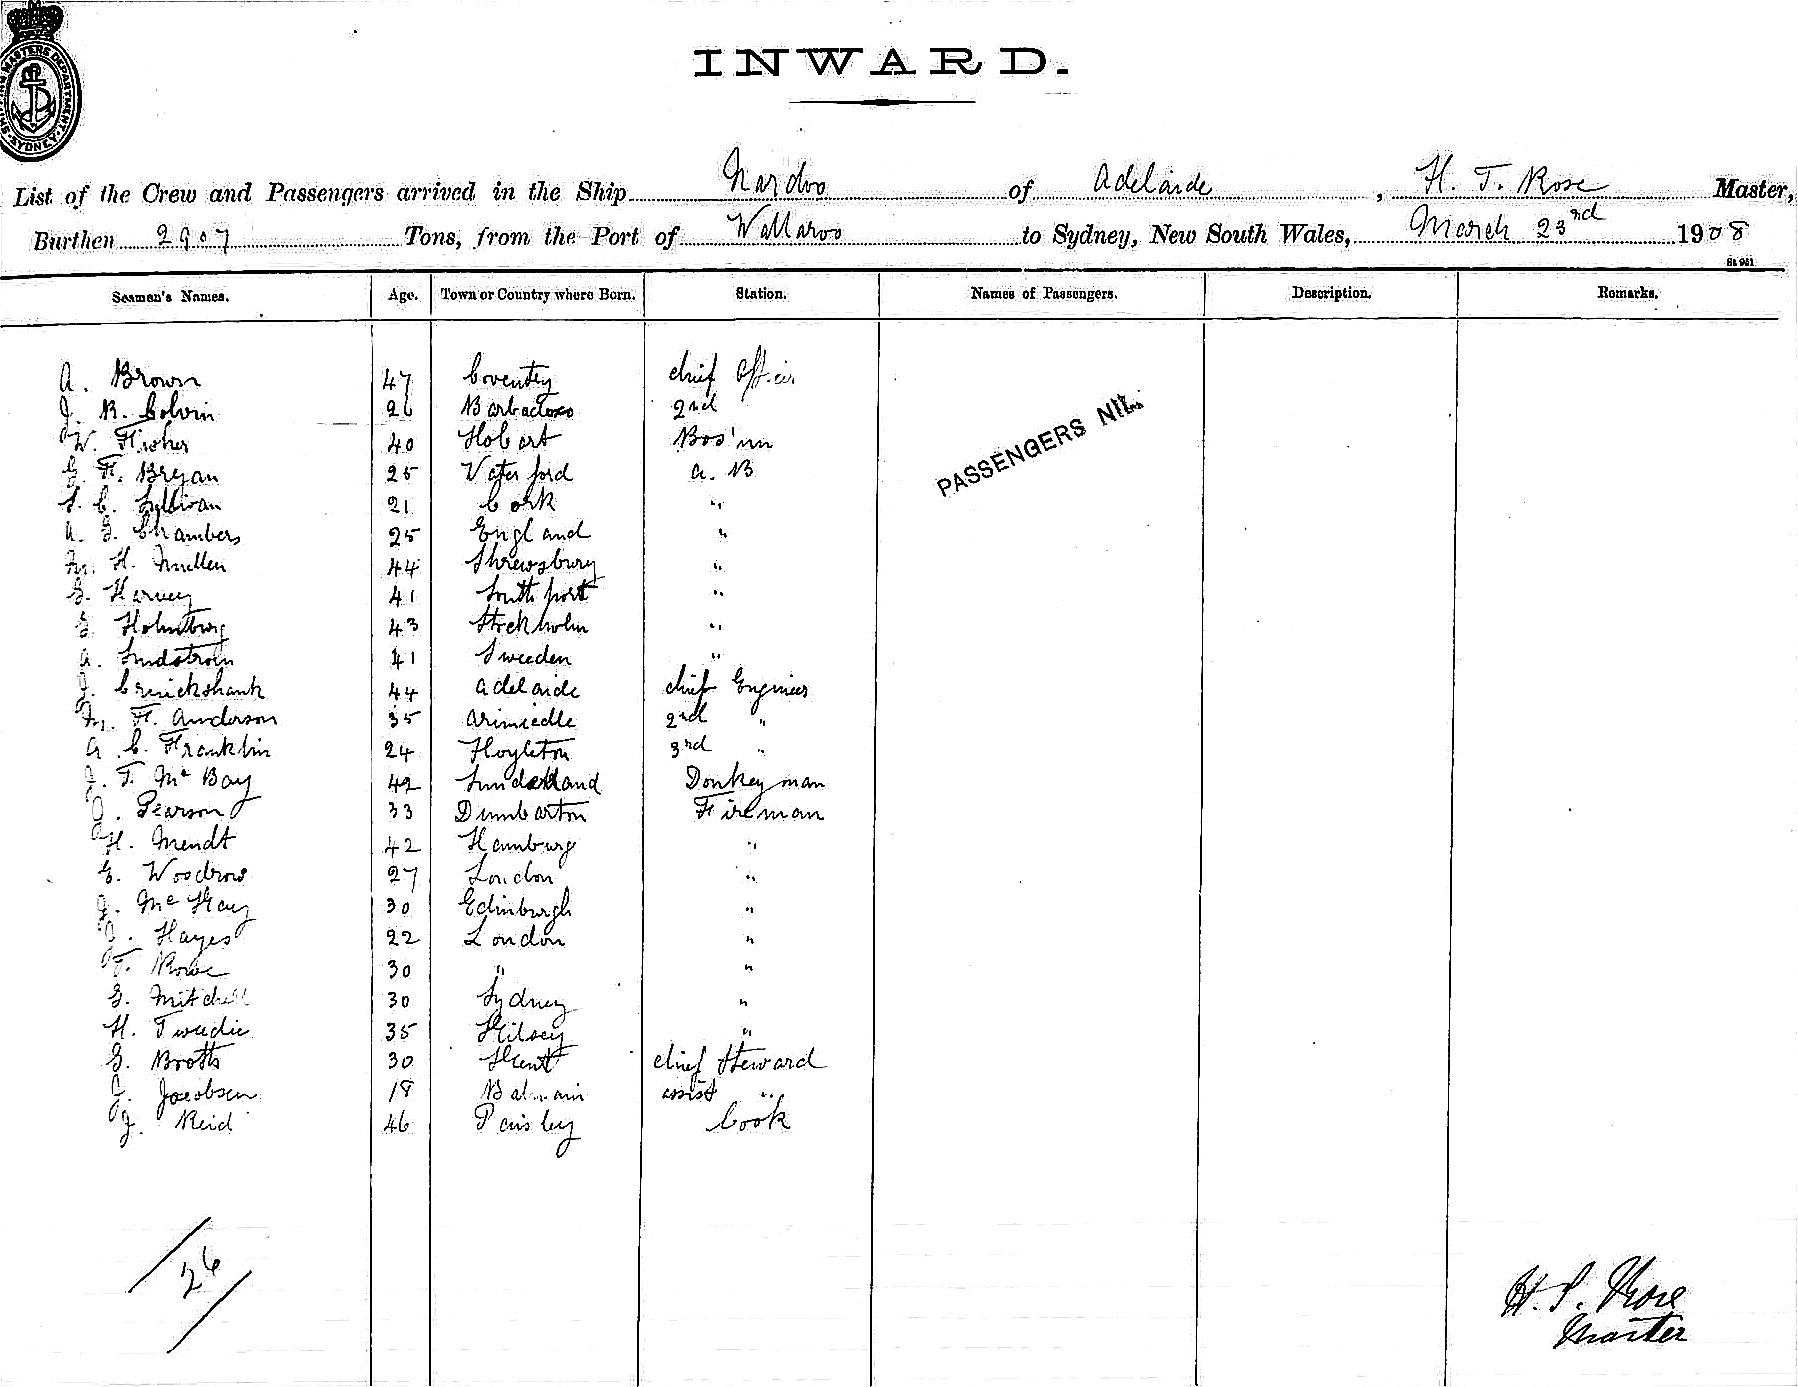 SHIPPING MASTERS DEPARTMENT. SYDNEY.
INWARD.
List of the Crew and Passengers arrived in the Ship Nardoo of Adelaide, H. T. Rose Master,
Burthen 2907 Tons, from the Port of Wallaroo to Sydney, New South Wales, March 23rd 1908
Seamen's Names. Age. Town or Country where Born. Station. Names of Passengers. Description. Remarks.
A. Brown 47 Coventry chief Officer
J. R. Colvin 26 Barbadoes 2nd "
W. Fisher 40 Hobart Bos'un
G. H. Bryan 25 Waterford A. B
C. Sullivan 21 Cork "
A. G. Chambers 25 England "
M. H. Mullen 44 Shrewsbury "
G. Harvey 41 Southport "
G. Holmburg 43 Stockholm "
A. Lindstrom 41 Sweeden "
J. Cruickshank 44 Adelaide chief Engineer
M. H. Anderson 35 2nd "
A. C. Franklin 24 Hoyleton 3rd "
J. T. McBay 42 Sunderland Donkeyman
J. Pearson 33 Dumbarton Fireman
H. Mendt 42 Hamburg "
G. Woodrow 27 London "
J. McKay 30 Edinburgh "
J. Hayes 22 London "
T. Rowe 30 " "
G. Mitchell 30 Sydney "
H. Tweedie 35 Kilsey "
G. Brotts 30 Kent chief Steward
J. Jacobsen 18 Balmain assist "
J. Reid 46 Paisley Cook
PASSENGERS NIL.
26
H. T. Rose
Master